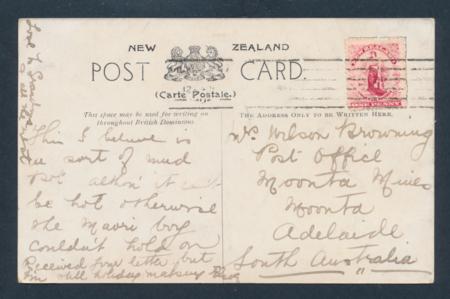 Love to Grandma
NEW ZEALAND
POST CARD.
(Carte Postale.)
This space may be used for writing on
throughout British Dominions
THE ADDRESS ONLY TO BE WRITTEN HERE.
NEW ZEALAND
ONE PENNY
This I believe is
a sort of mud
pot altho' it can't
be hot otherwise
the Maori boy
couldn't hold on
Received your letter but
I'm still holiday making
Wilson Browning
Post Office
Moonta Mines
Moonta
Adelaide
South Australia